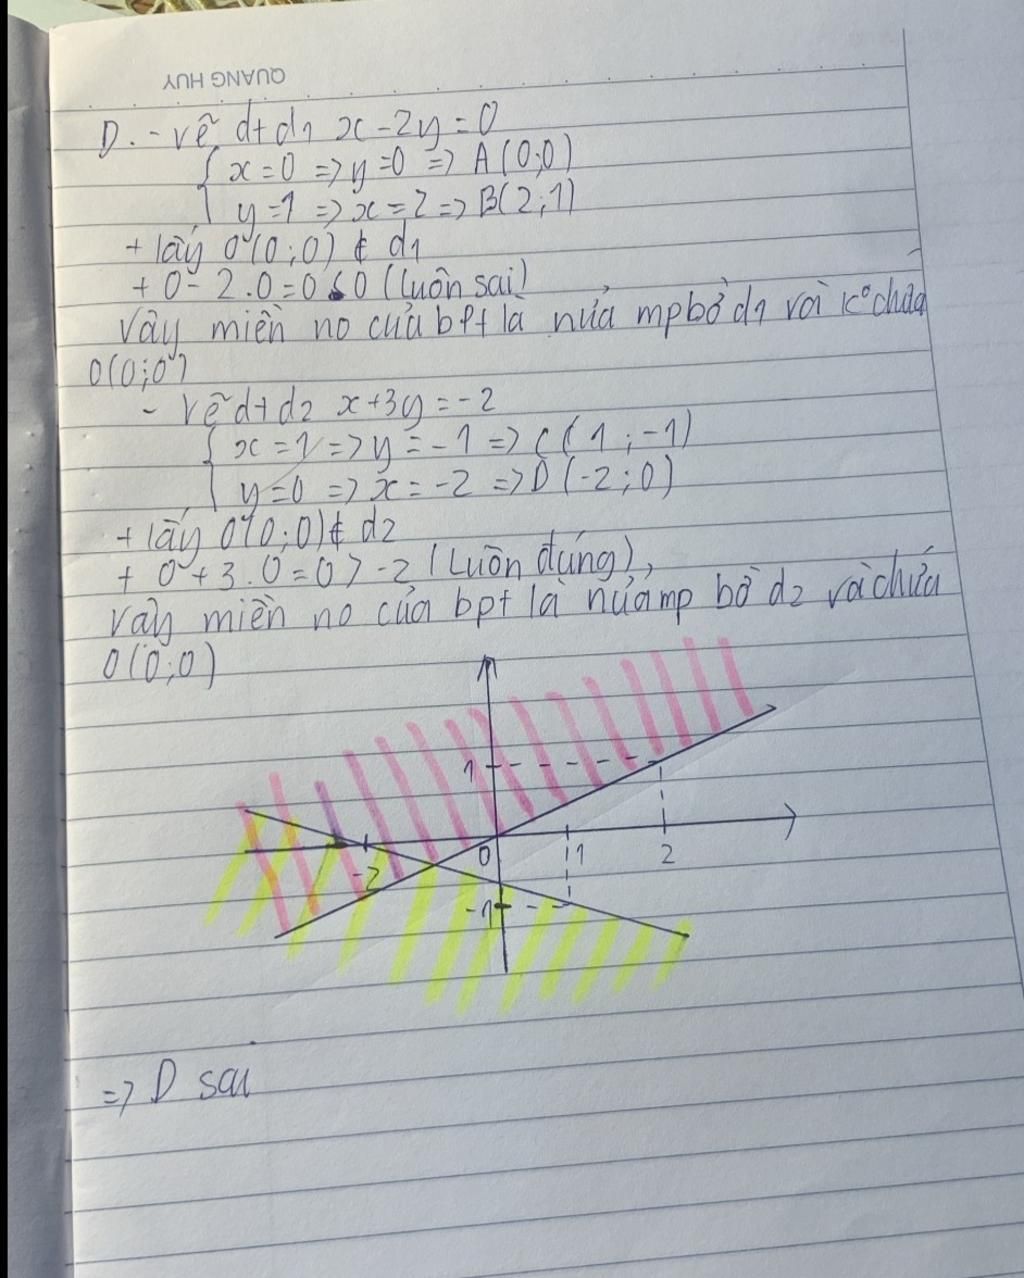 QUANG HUY
D. - vẽ đt d1 x - 2y = 0
{ x = 0 => y = 0 => A(0;0)
y = 1 => x = 2 => B(2;1)
+ lấy O(0;0) ∉ d1
+ 0 - 2.0 = 0 < 0 (luôn sai)
Vậy miền no của bpt là nửa mp bờ d1 và k° chứa
O(0;0)
- Vẽ đt d2 x + 3y = -2
{ x = 1 => y = -1 => C(1;-1)
y = 0 => x = -2 => D(-2;0)
+ lấy O(0;0) ∉ d2
+ 0 + 3.0 = 0 > -2 (Luôn đúng),
Vậy miền no của bpt là nửa mp bờ d2 và chứa
O(0;0)
1
0 1 2
-2
-1
=> D sai